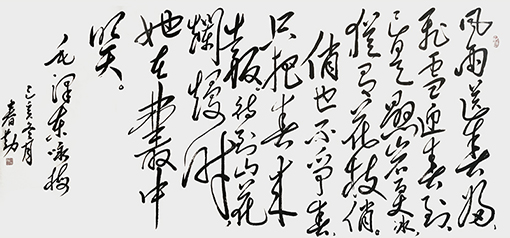 風雨送春归,
飛雪迎春到,
已是懸岩百丈冰,
犹有花枝俏。
俏也不争春,
只把春来
報,待到山花
爛熳时,
她在叢中
笑。
毛澤东咏梅
己亥 月
春